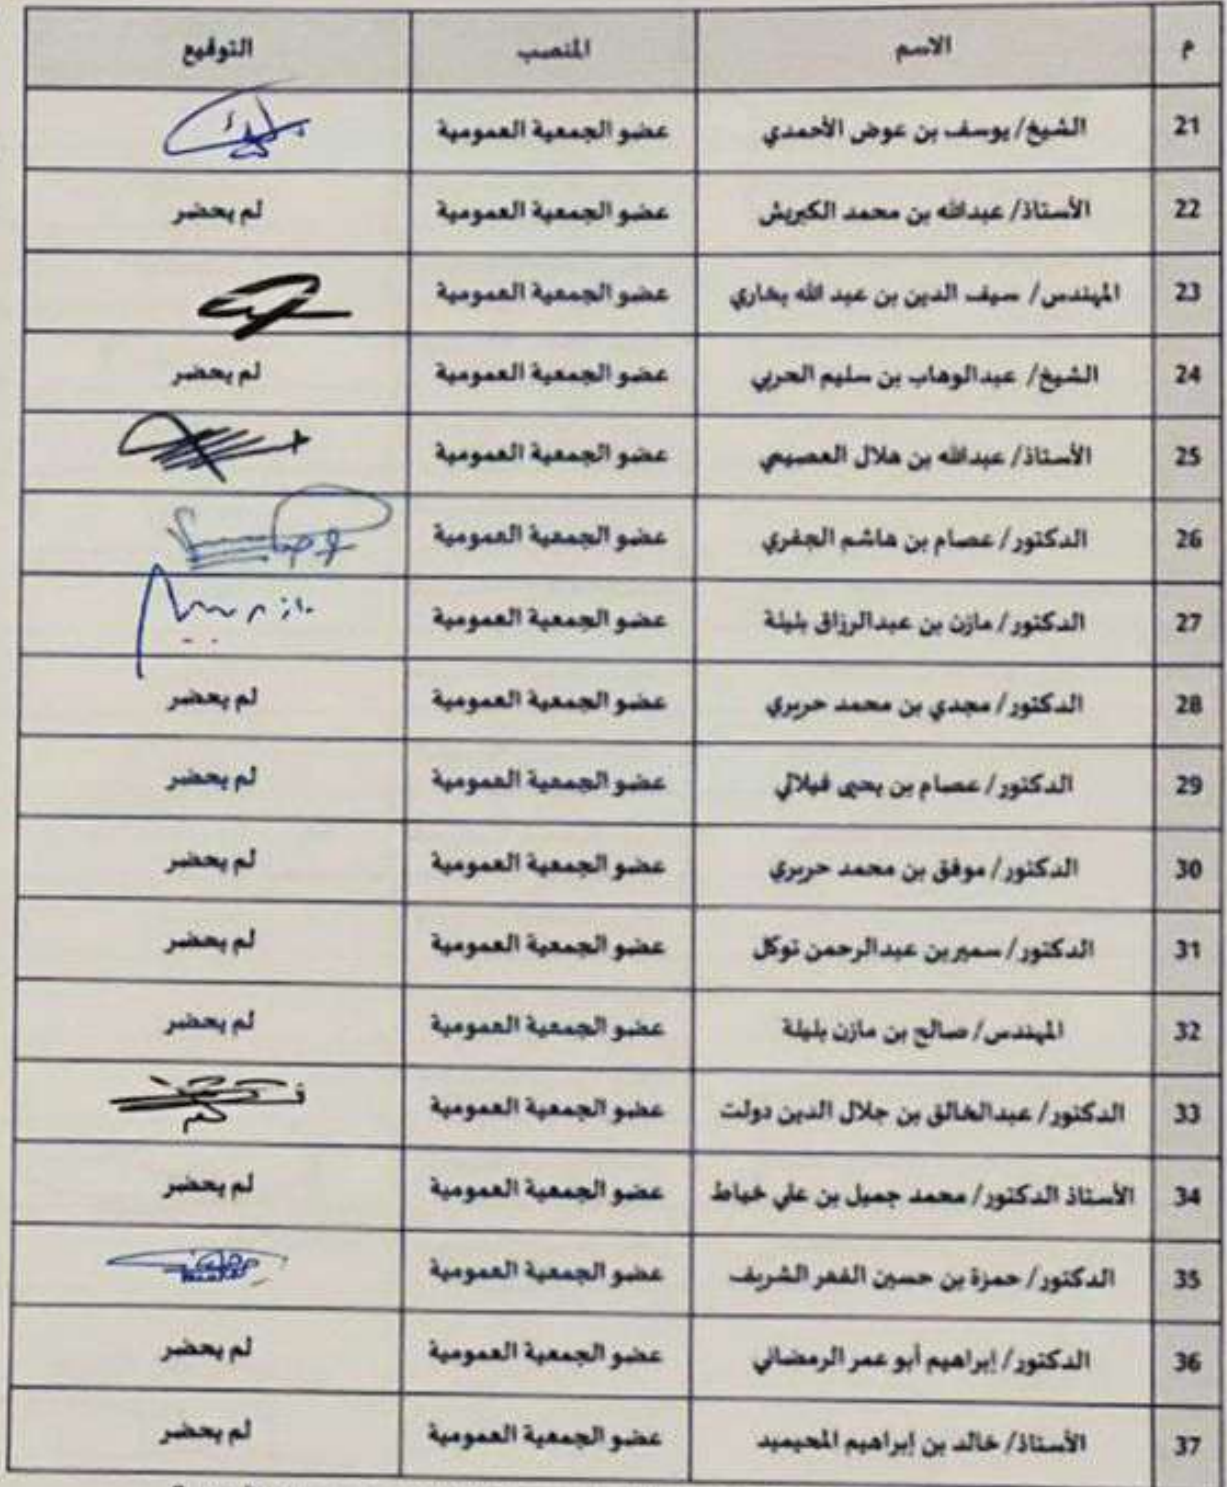 م الاسم المنصب التوقيع
21 الشيخ/ يوسف بن عوض الأحمدي عضو الجمعية العمومية
22 الأستاذ/ عبدالله بن محمد الكبريش عضو الجمعية العمومية لم يحضر
23 المهندس/ سيف الدين بن عبد الله بخاري عضو الجمعية العمومية
24 الشيخ/ عبدالوهاب بن سليم الحربي عضو الجمعية العمومية لم يحضر
25 الأستاذ/ عبدالله بن هلال العصيمي عضو الجمعية العمومية
26 الدكتور/ عصام بن هاشم الجفري عضو الجمعية العمومية
27 الدكتور/ مازن بن عبدالرزاق بليلة عضو الجمعية العمومية
28 الدكتور/ مجدي بن محمد حريري عضو الجمعية العمومية لم يحضر
29 الدكتور/ عصام بن يحيى فيلالي عضو الجمعية العمومية لم يحضر
30 الدكتور/ موفق بن محمد حريري عضو الجمعية العمومية لم يحضر
31 الدكتور/ سمير بن عبدالرحمن توكل عضو الجمعية العمومية لم يحضر
32 المهندس/ صالح بن مازن بليلة عضو الجمعية العمومية لم يحضر
33 الدكتور/ عبدالخالق بن جلال الدين دولت عضو الجمعية العمومية
34 الأستاذ الدكتور/ محمد جميل بن علي خياط عضو الجمعية العمومية لم يحضر
35 الدكتور/ حمزة بن حسين الفعر الشريف عضو الجمعية العمومية
36 الدكتور/ إبراهيم أبو عمر الرمضاني عضو الجمعية العمومية لم يحضر
37 الأستاذ/ خالد بن إبراهيم المحيميد عضو الجمعية العمومية لم يحضر